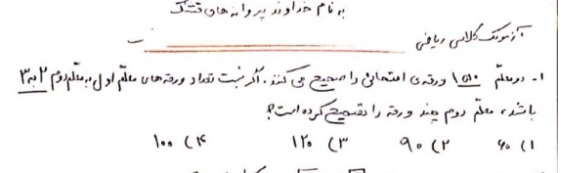 به نام خداوند پروانه های قشنگ
آزمونک کلاسی ریاضی
۱- دو معلم ۱۵۰ ورقه ی امتحانی را صحیح می کنند. اگر نسبت تعداد ورقه های معلم اول به معلم دوم ۲ به ۳
باشد، معلم دوم چند ورقه را تصحیح کرده است؟
۱) ۶۰ ۲) ۹۰ ۳) ۱۲۰ ۴) ۱۰۰